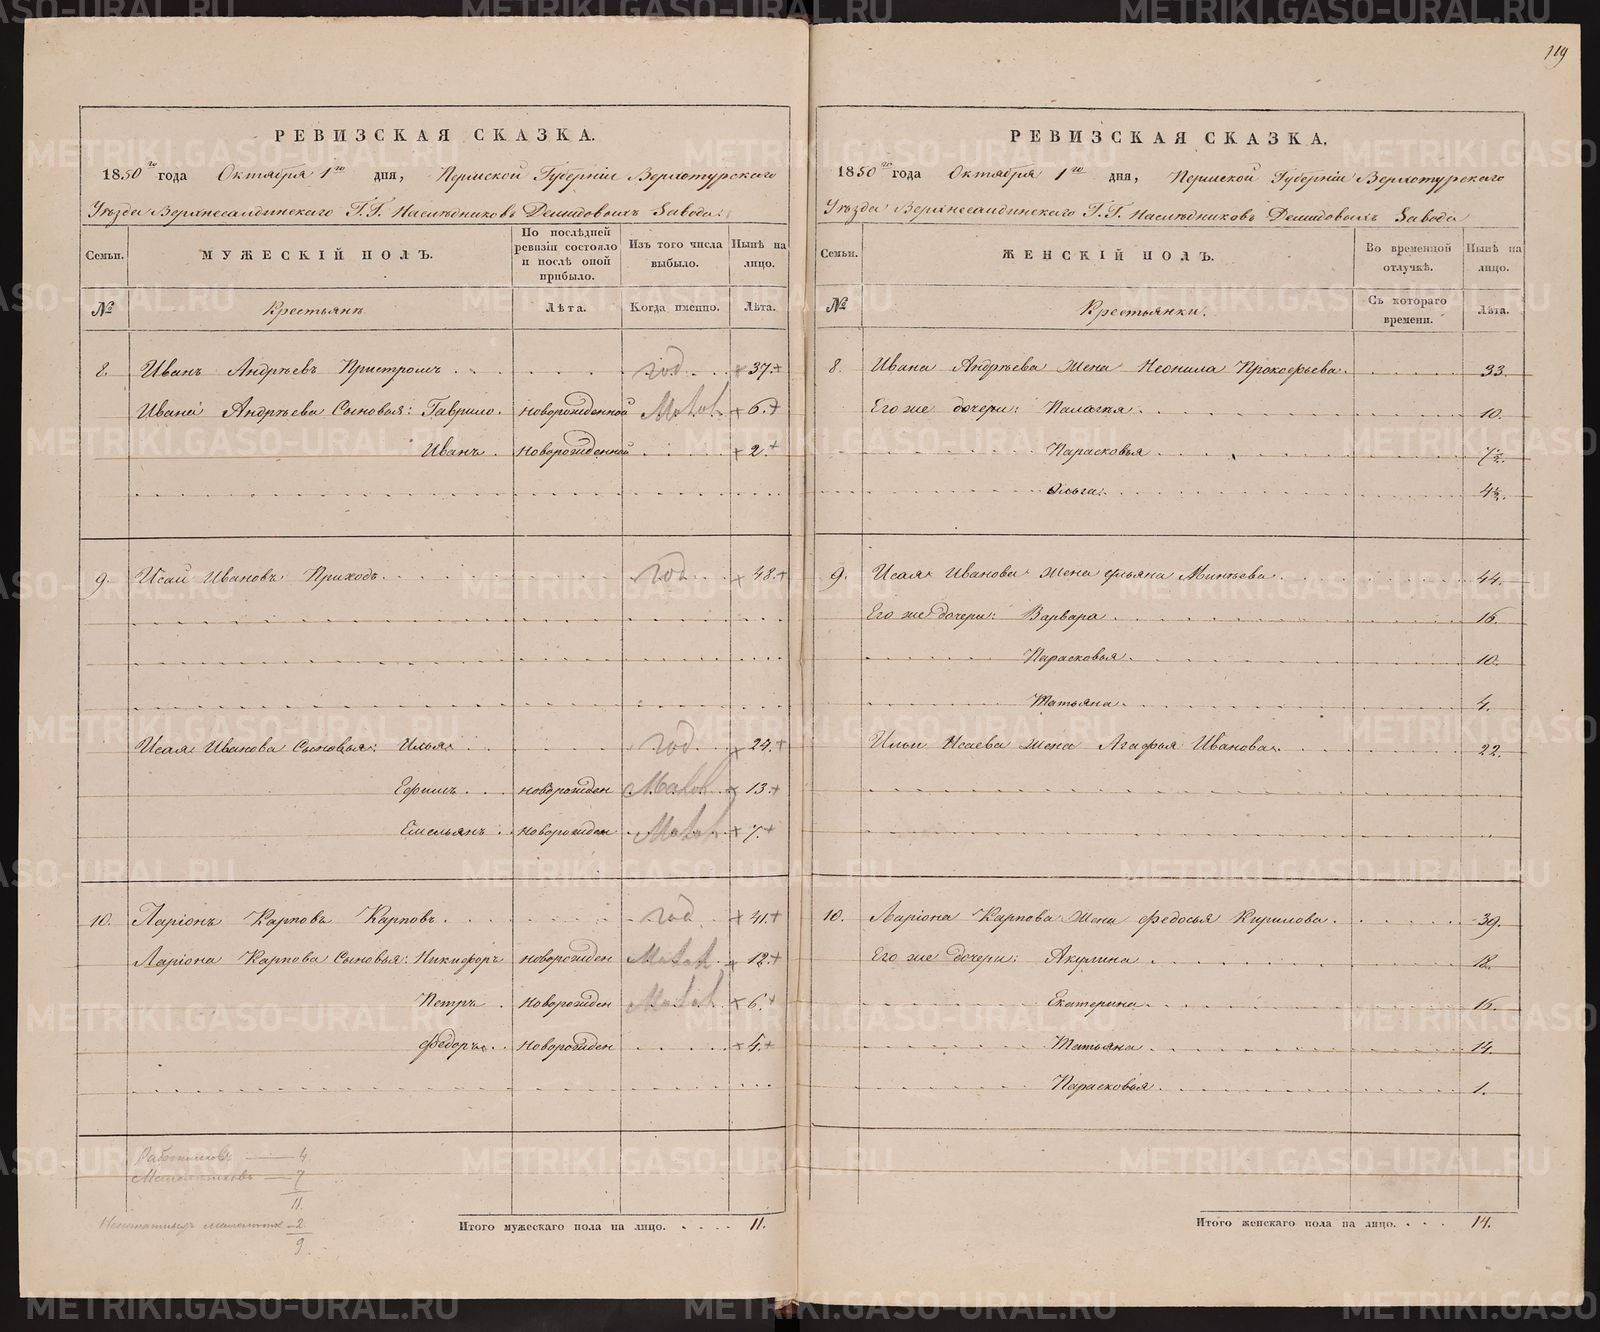 119
РЕВИЗСКАЯ СКАЗКА.
1850го года Октября 1го дня, Пермской Губерніи Верхотурскаго
Уѣзда Верхнесалдинскаго Г.Г. Наслѣдниковъ Демидовыхъ Завода:
Семьи.
МУЖЕСКІЙ ПОЛЪ.
По послѣдней ревизіи состояло и послѣ оной прибыло.
Изъ того числа выбыло.
Нынѣ на лицо.
№
Крестьянъ
Лѣта.
Когда именно.
Лѣта.
8. Иванъ Андрѣевъ Пристромъ год 37.
Ивана Андрѣева Сыновья: Гаврило новорожденной 6.
Иванъ новорожденной 2.
9. Исай Ивановъ Приходъ год 48.
Исая Иванова Сыновья: Илья год 24.
Ефимъ новорожден 13.
Емельянъ новорожден 7.
10. Ларіонъ Карповъ Карповъ год 41.
Ларіона Карпова Сыновья: Никифоръ новорожден 12.
Петръ новорожден 6.
Федоръ новорожден 4.
Работниковъ 4.
7
11.
2
9.
Итого мужескаго пола на лицо. 11.
РЕВИЗСКАЯ СКАЗКА.
1850го года Октября 1го дня, Пермской Губерніи Верхотурскаго
Уѣзда Верхнесалдинскаго Г.Г. Наслѣдниковъ Демидовыхъ Завода
Семьи.
ЖЕНСКІЙ ПОЛЪ.
Во временной отлучкѣ.
Нынѣ на лицо.
№
Крестьянки.
Съ котораго времени.
Лѣта.
8. Ивана Андрѣева жена Неонила Прокофьева 33.
Его же дочери: Палагея 10.
Парасковья 7½.
Ольга 4½.
9. Исая Иванова жена Ульяна Минѣева 44.
Его же дочери: Варвара 16.
Парасковья 10.
Татьяна 4.
Ильи Исаева жена Агафья Иванова 22.
10. Ларіона Карпова жена Федосья Кирилова 39.
Его же дочери: Акулина 18.
Екатерина 16.
Татьяна 14.
Парасковья 1.
Итого женскаго пола на лицо. 14.
METRIKI.GASO-URAL.RU